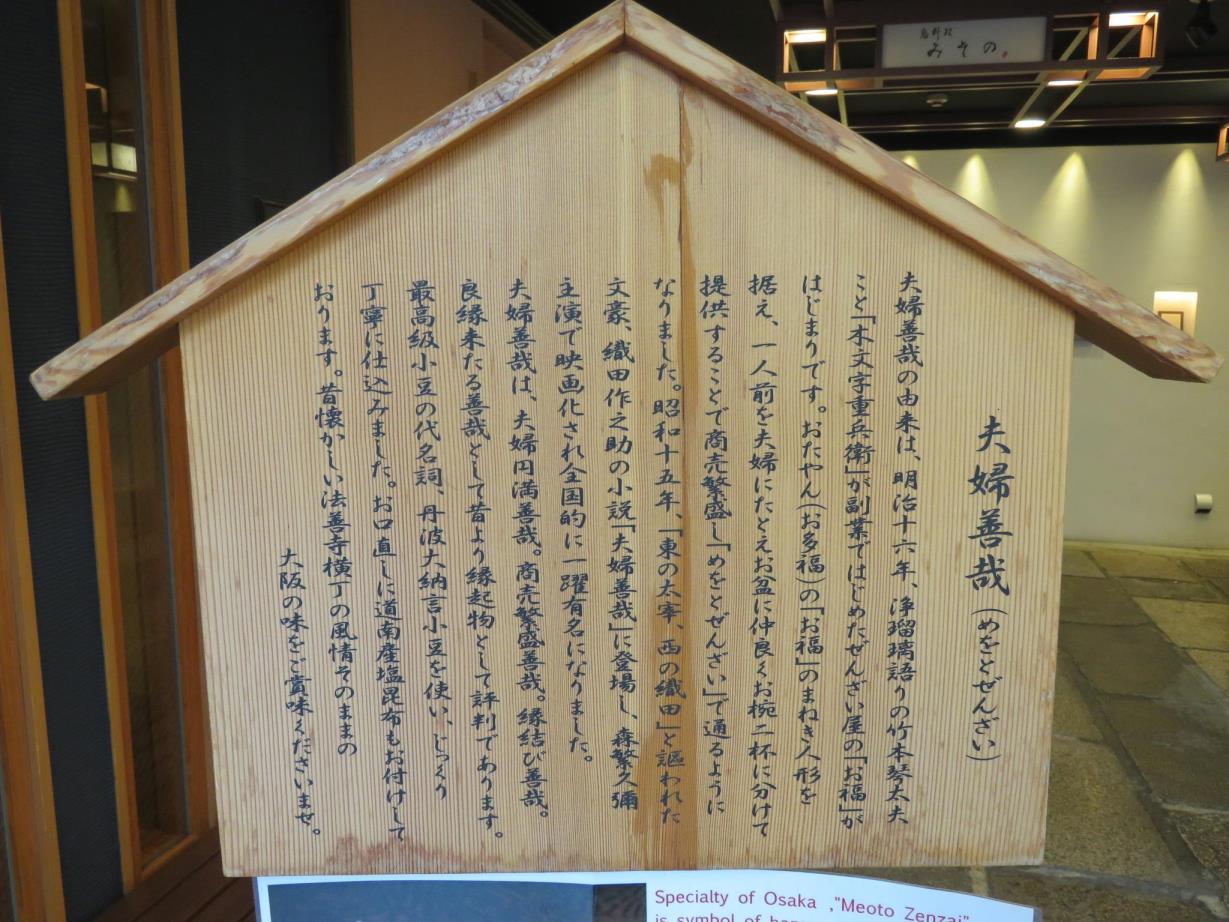 みその
夫婦善哉（めをとぜんざい）
夫婦善哉の由来は、明治十六年、浄瑠璃語りの竹本琴太夫
こと「木文字重兵衛」が副業ではじめたぜんざい屋の「お福」が
はじまりです。おたやん（お多福）の「お福」のまねき人形を
据え、一人前を夫婦にたとえお盆に仲良くお椀二杯に分けて
提供することで商売繁盛し「めをとぜんざい」で通るように
なりました。昭和十五年、「東の太宰、西の織田」と謳われた
文豪、織田作之助の小説「夫婦善哉」に登場し、森繁久彌
主演で映画化され全国的に一躍有名になりました。
夫婦善哉は、夫婦円満善哉。商売繁盛善哉。縁結び善哉。
良縁来たる善哉として昔より縁起物として評判であります。
最高級小豆の代名詞、丹波大納言小豆を使い、じっくり
丁寧に仕込みました。お口直しに道南産塩昆布もお付けして
おります。昔懐かしい法善寺横丁の風情そのままの
大阪の味をご賞味くださいませ。
Specialty of Osaka ,"Meoto Zenzai"
is symbol of